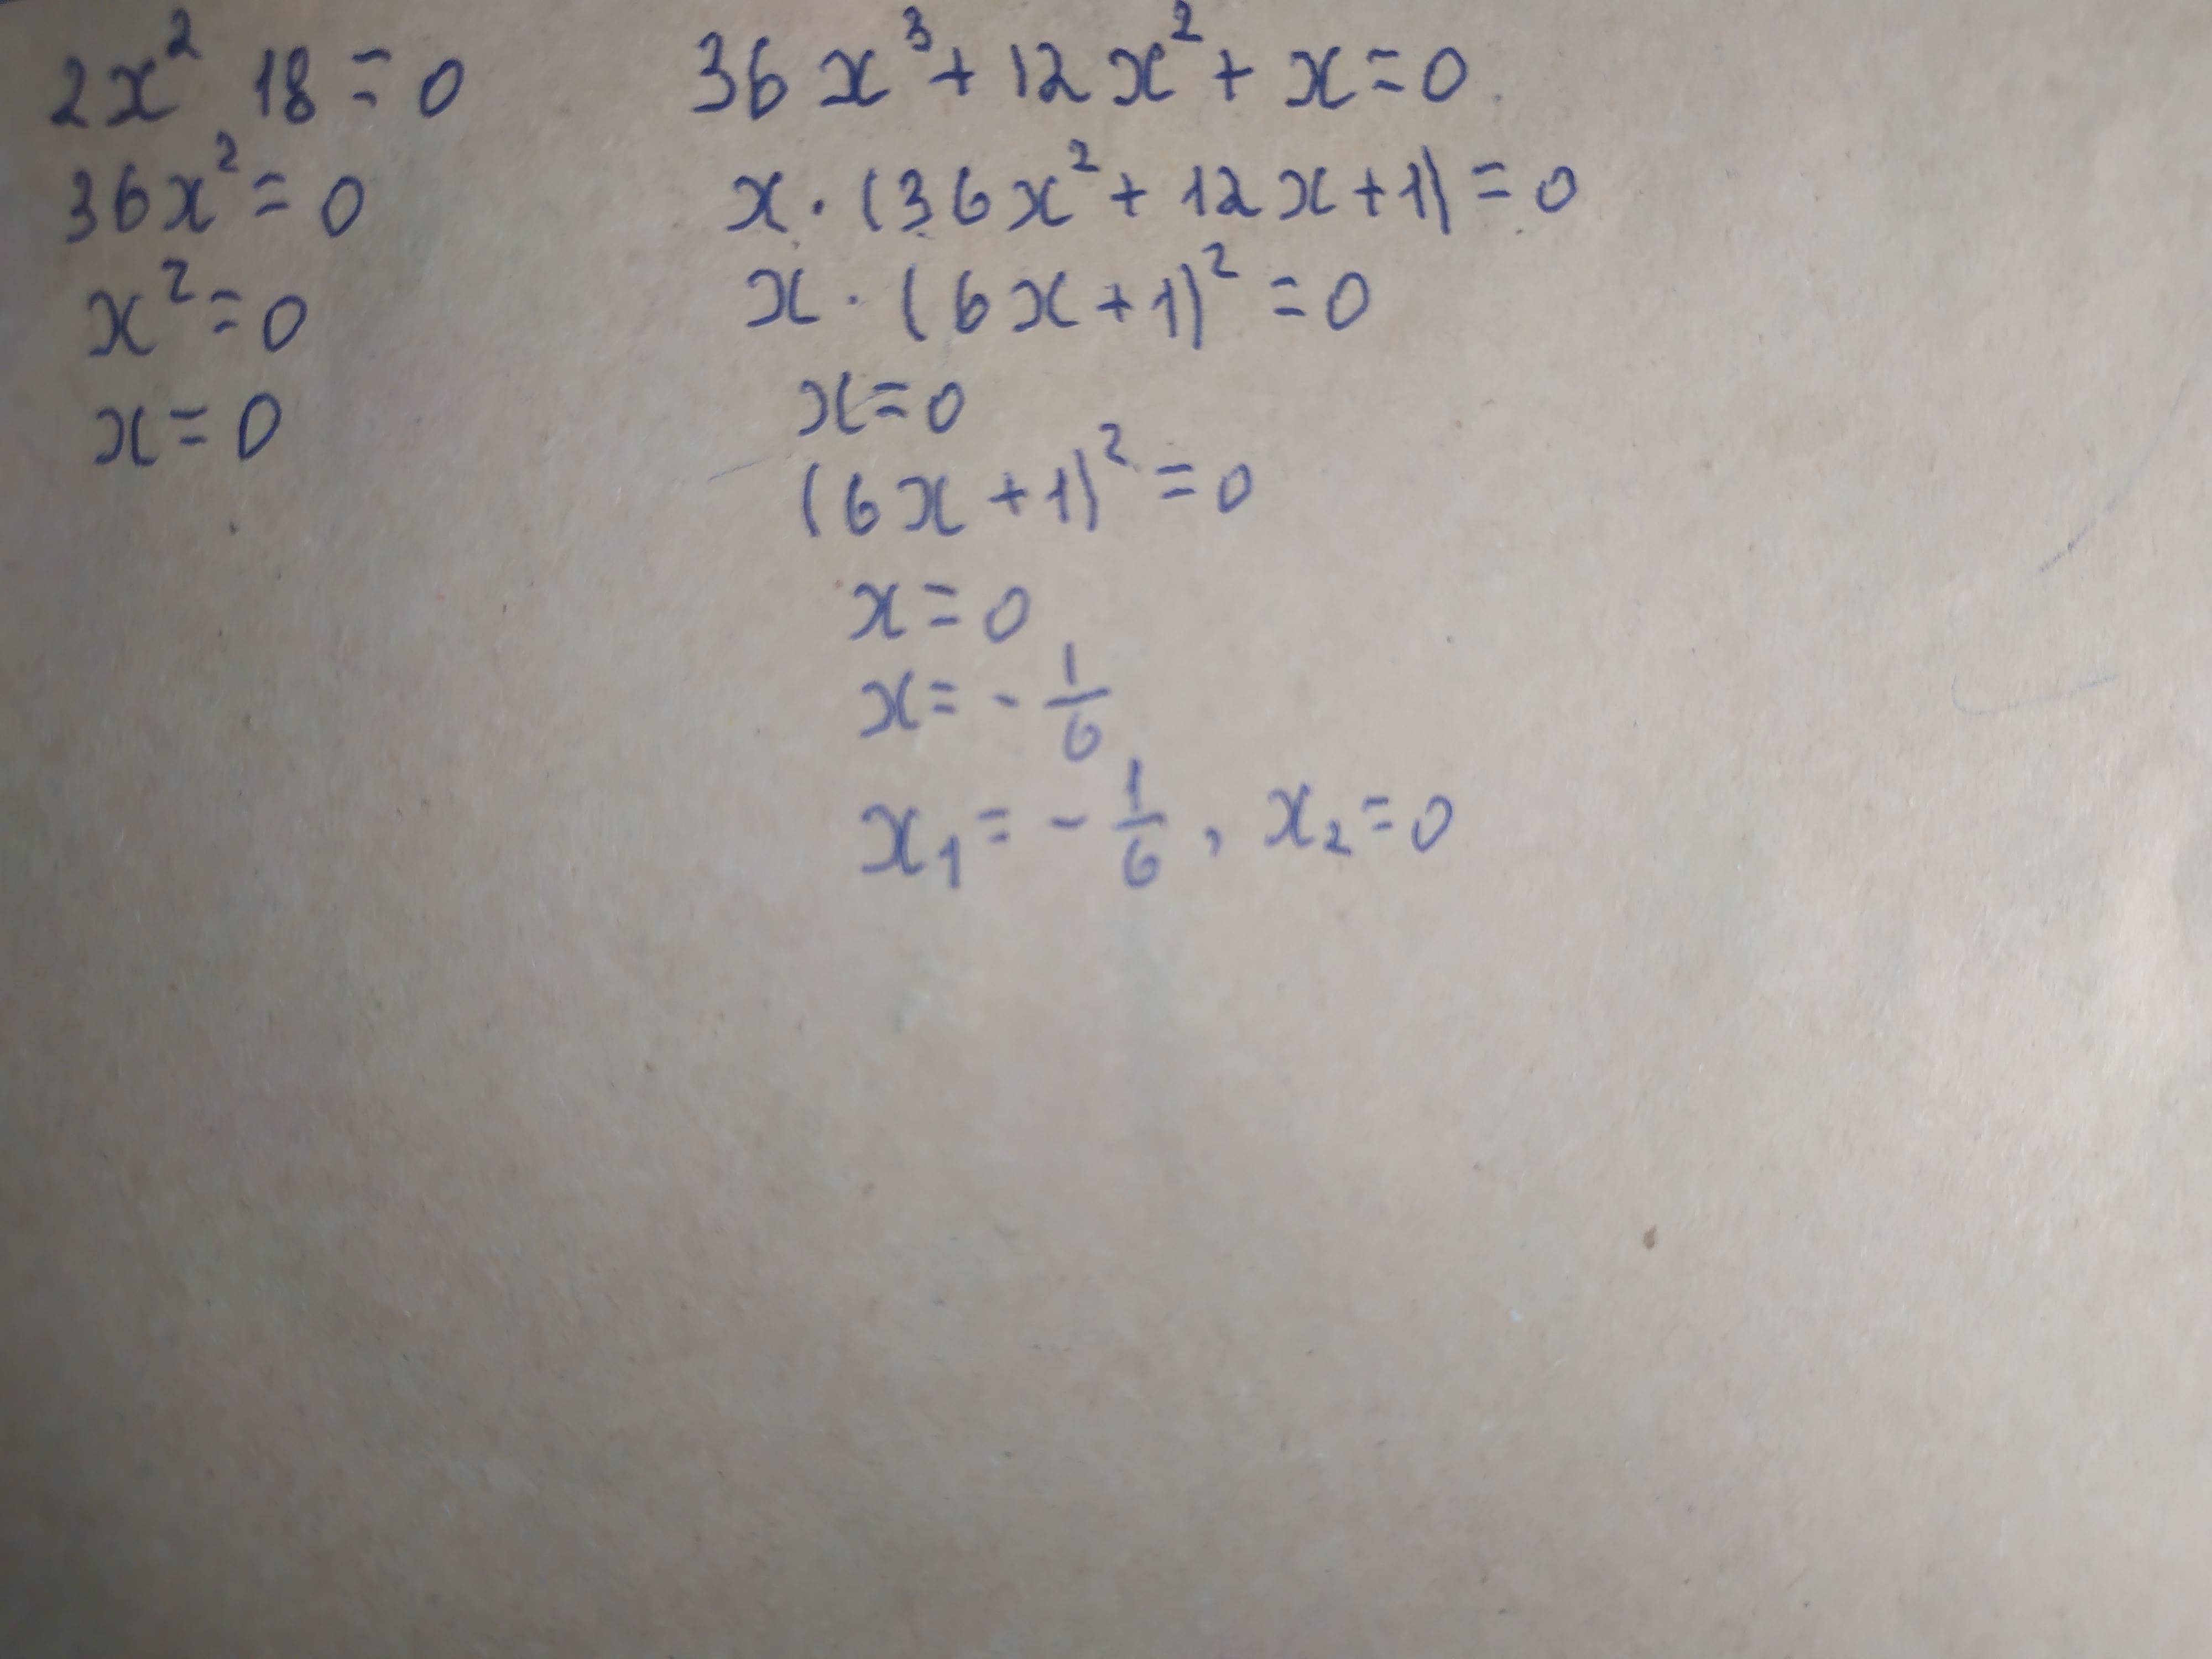 2x² 18 = 0
36x² = 0
x² = 0
x = 0
36x³ + 12x² + x = 0
x · (36x² + 12x + 1) = 0
x · (6x + 1)² = 0
x = 0
(6x + 1)² = 0
x = 0
x = - 1/6
x₁ = - 1/6 , x₂ = 0